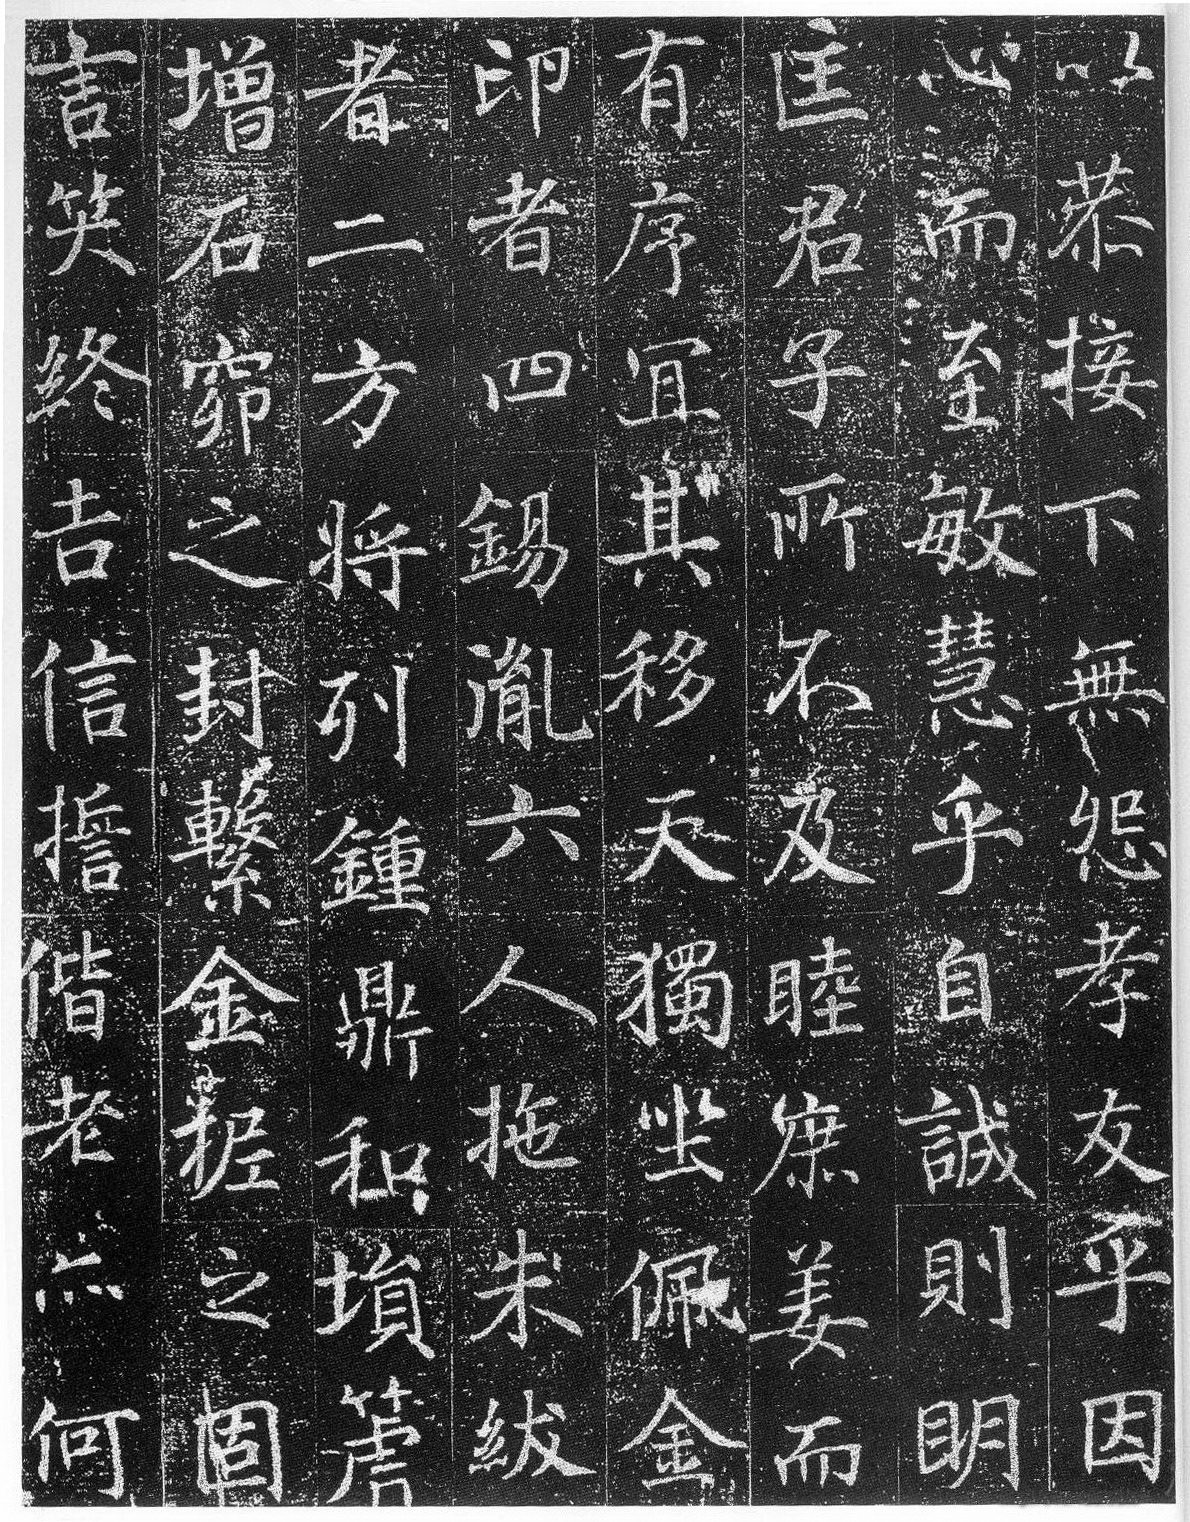 以恭接下無怨孝友乎因
心而至敏慧乎自誠則明
匡君子所不及睦庶姜而
有序宜其移天獨坐佩金
印者四錫胤六人拖朱紱
者二方將列鍾鼎和塤篪
增石窌之封繫金柅之固
言笑終吉信誓偕老亦何